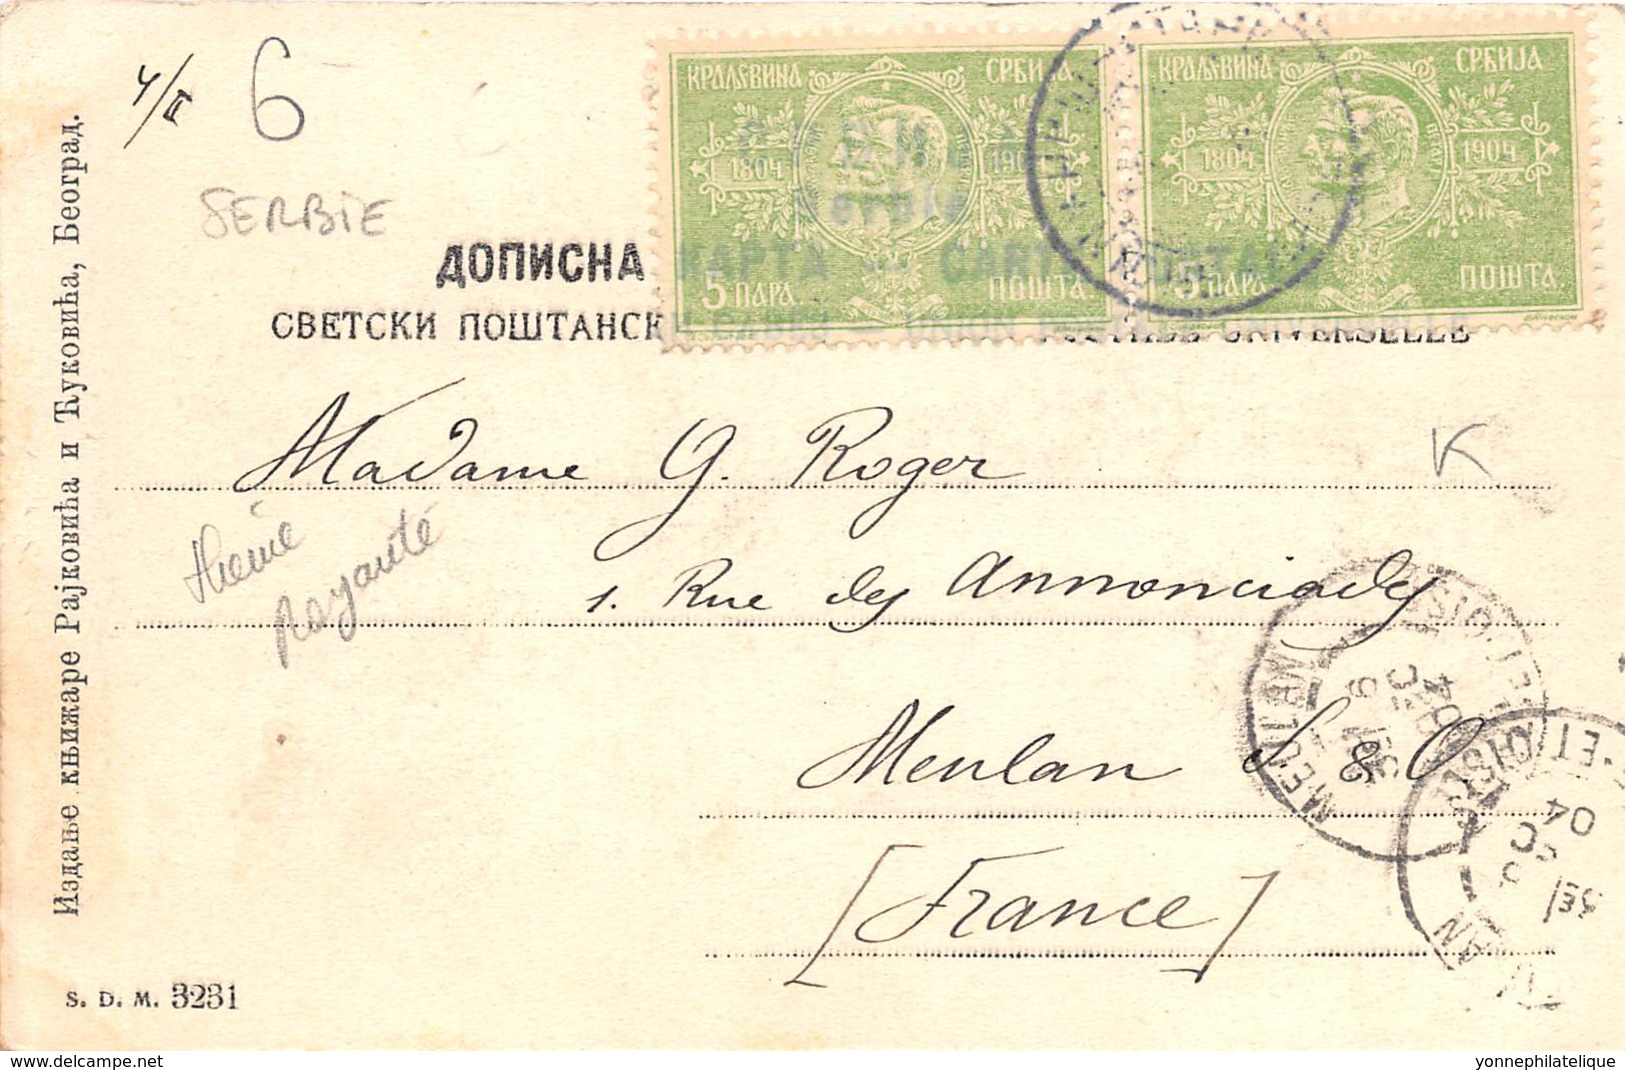 4/II
6
SERBIE
КРАЉЕВИНА СРБИЈА
1804 1904
5 ПАРА. ПОШТА.
КРАЉЕВИНА СРБИЈА
1804 1904
5 ПАРА. ПОШТА.
ДОПИСНА КАРТА
СВЕТСКИ ПОШТАНСКИ САВЕЗ UNION POSTALE UNIVERSELLE
Madame G. Roger
K
1. Rue des Annonciades
Meulan S. & O.
[France]
thème
Royauté
MEULAN
SEINE-ET-OISE
9 DEC 04
04
Издање књижаре Рајковића и Ћуковића, Београд.
S. D. M. 3231
www.delcampe.net
yonnephilatelique